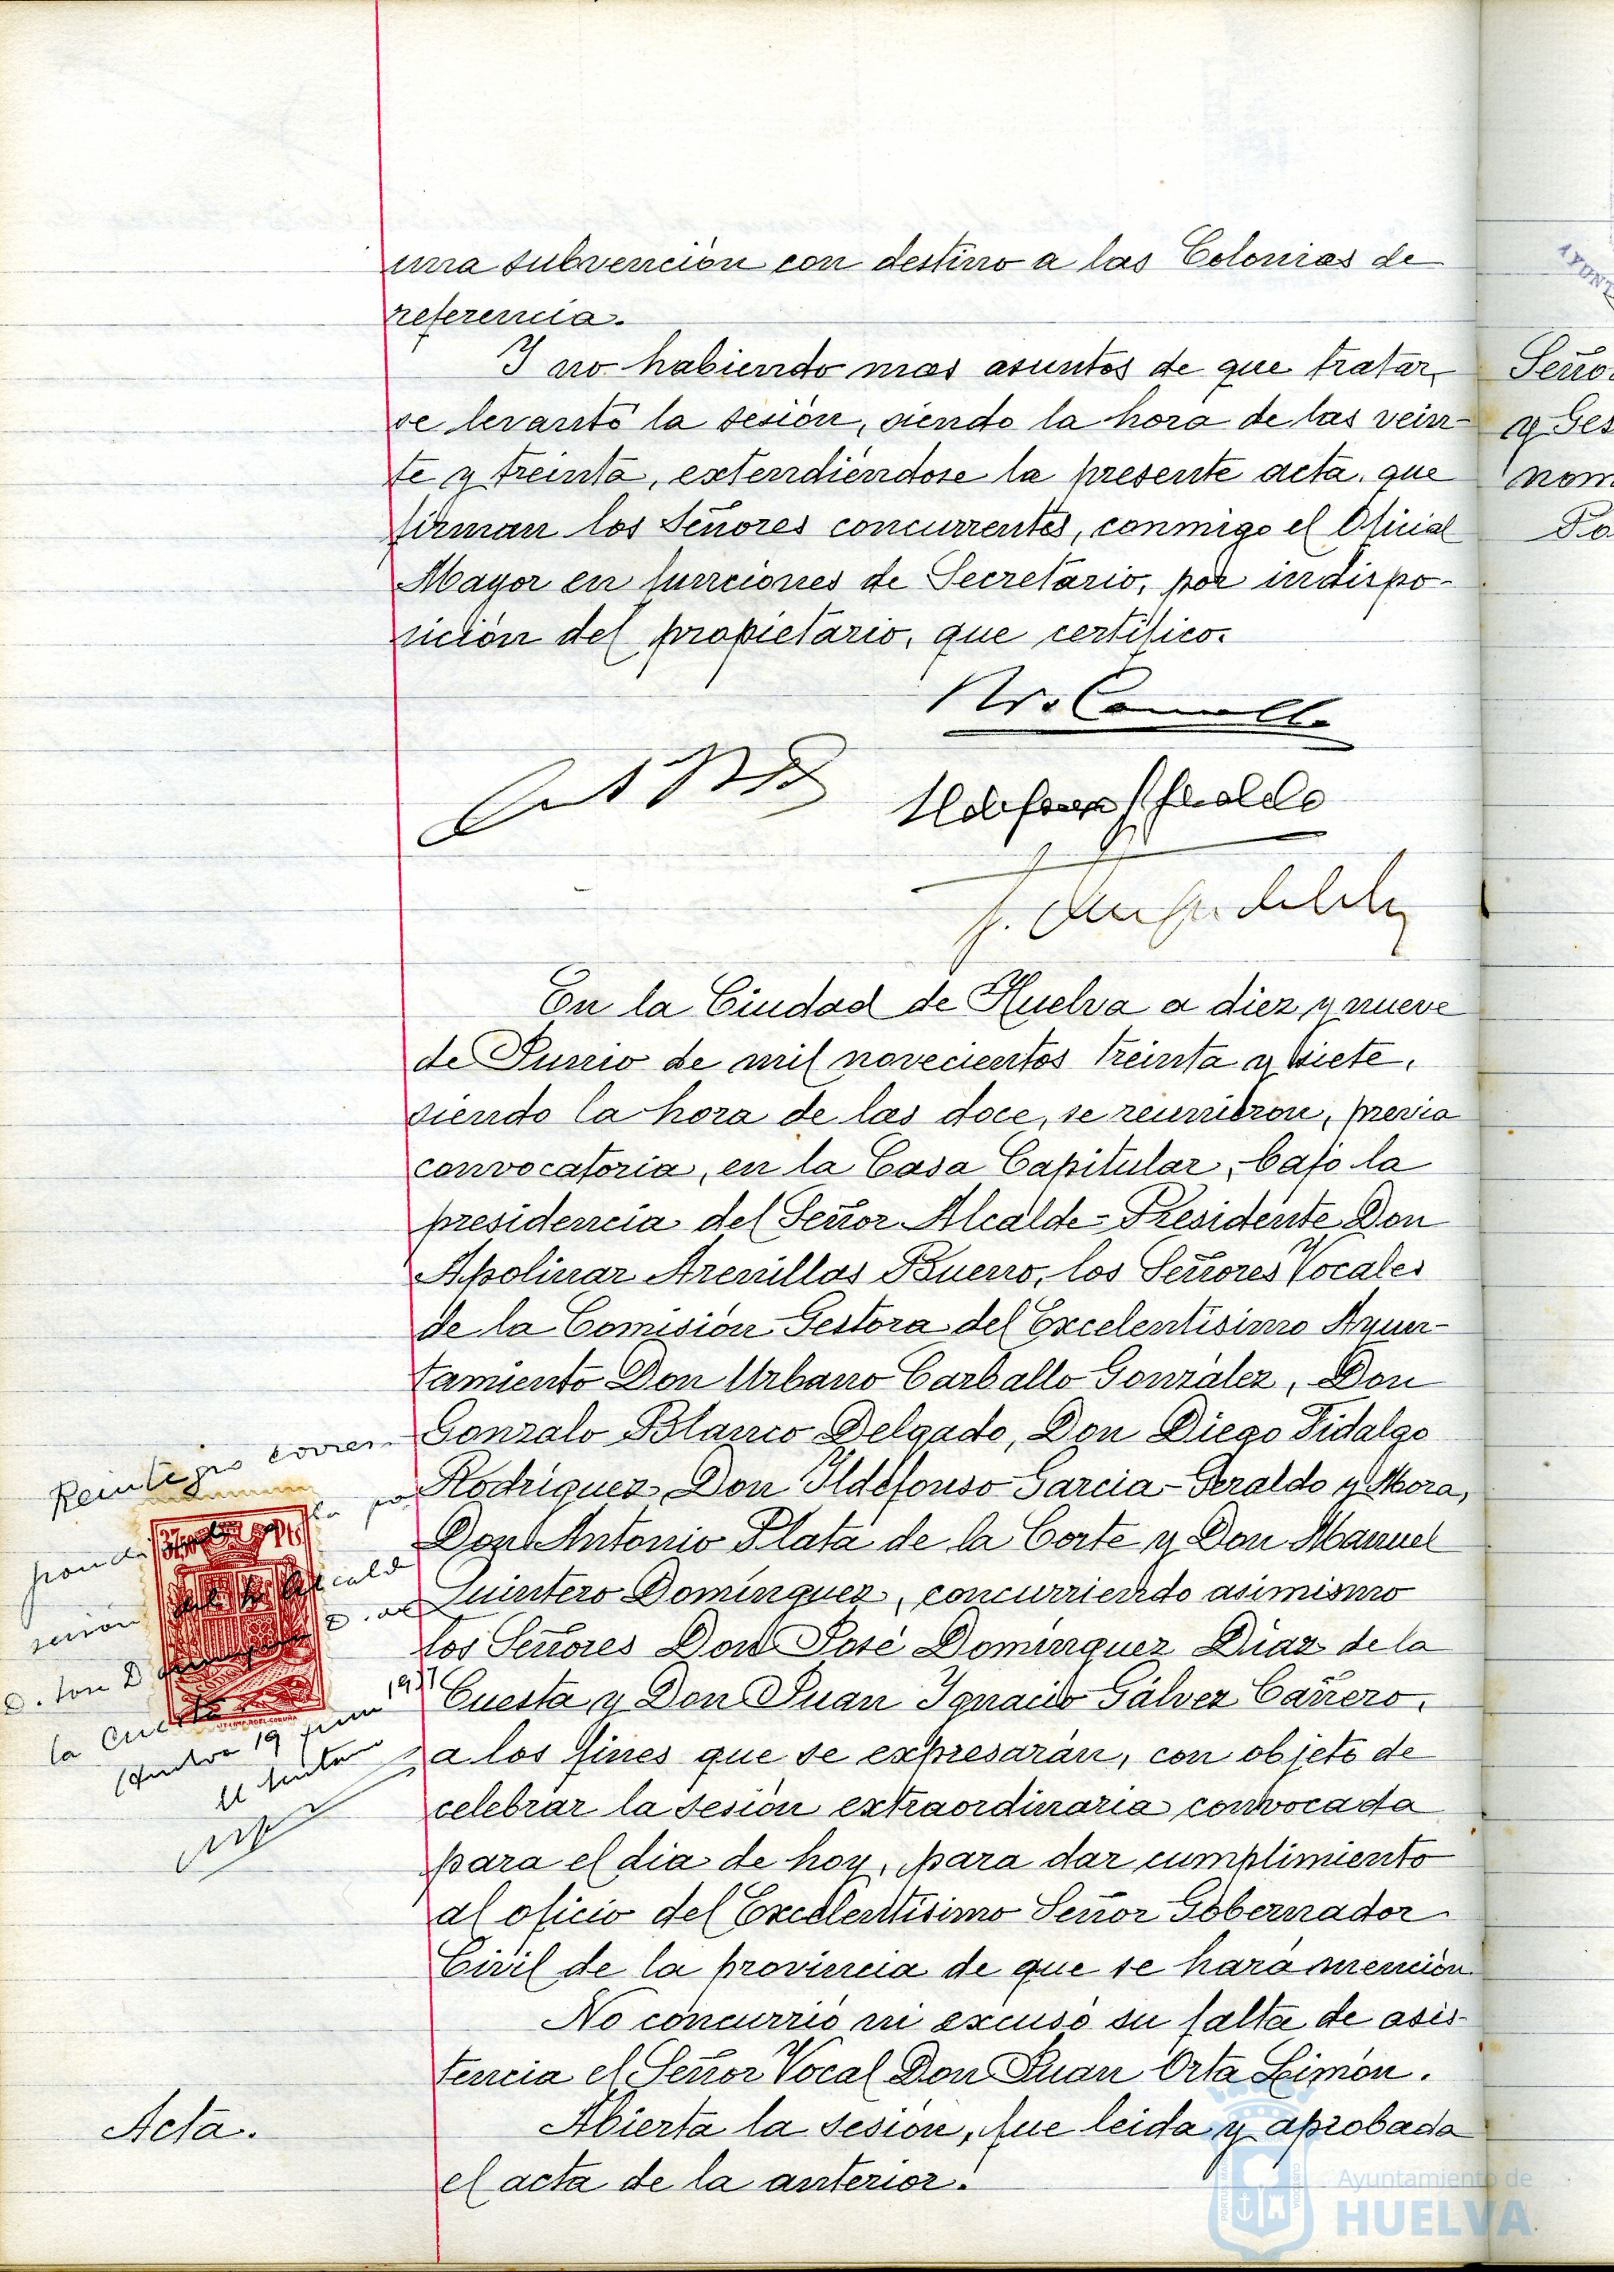 una subvención con destino a las Colonias de
referencia.
Y no habiendo mas asuntos de que tratar,
se levantó la sesión, siendo la hora de las vein-
te y treinta, extendiéndose la presente acta, que
firman los Señores concurrentes, conmigo el Oficial
Mayor en funciones de Secretario, por indispo-
sición del propietario, que certifico.
En la Ciudad de Huelva a diez y nueve
de Junio de mil novecientos treinta y siete,
siendo la hora de las doce, se reunieron, previa
convocatoria, en la Casa Capitular, bajo la
presidencia del Señor Alcalde-Presidente Don
Apolinar Arenillas Bueno, los Señores Vocales
de la Comisión Gestora del Excelentísimo Ayun-
tamiento Don Urbano Carballo González, Don
Gonzalo Blanco Delgado, Don Diego Fidalgo
Rodríguez, Don Ildefonso Garcia-Geraldo y Mora,
Don Antonio Plata de la Corte y Don Manuel
Quintero Domínguez, concurriendo asimismo
los Señores Don José Domínguez Diaz de la
Cuesta y Don Juan Ignacio Gálvez Cañero,
a los fines que se expresarán, con objeto de
celebrar la sesión extraordinaria convocada
para el dia de hoy, para dar cumplimiento
al oficio del Excelentísimo Señor Gobernador
Civil de la provincia de que se hará mención.
No concurrió ni excusó su falta de asis-
tencia el Señor Vocal Don Juan Orta Limón.
Acta.
Abierta la sesión, fue leida y aprobada
el acta de la anterior.
Reintegro corres-
la po
sesión del Alcalde
la Cuesta
Huelva 19 junio 1937
Señor
y Ges
nom
AYUNT
Ayuntamiento de
HUELVA